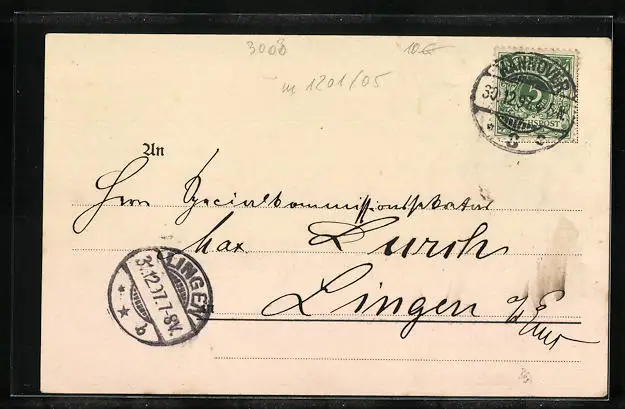 3008 10€
m 1201/05
HANNOVER
30.12.97
5
REICHSPOST
An
Herrn Specialkommissionssekretär
Max Dursch
Lingen a/Ems
LINGEN
31.12.97. 7-8V.
* * b